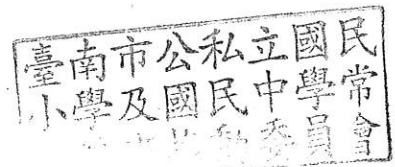 臺南市公私立國民
小學及國民中學常
委員會